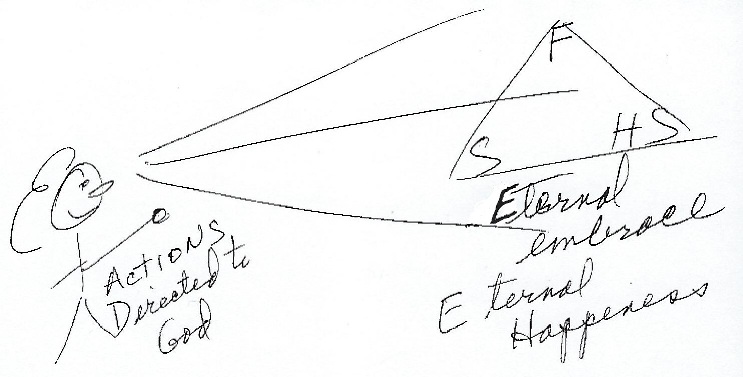 F
S HS
Eternal
embrace
Eternal
Happiness
ACTIONS
Directed to
God